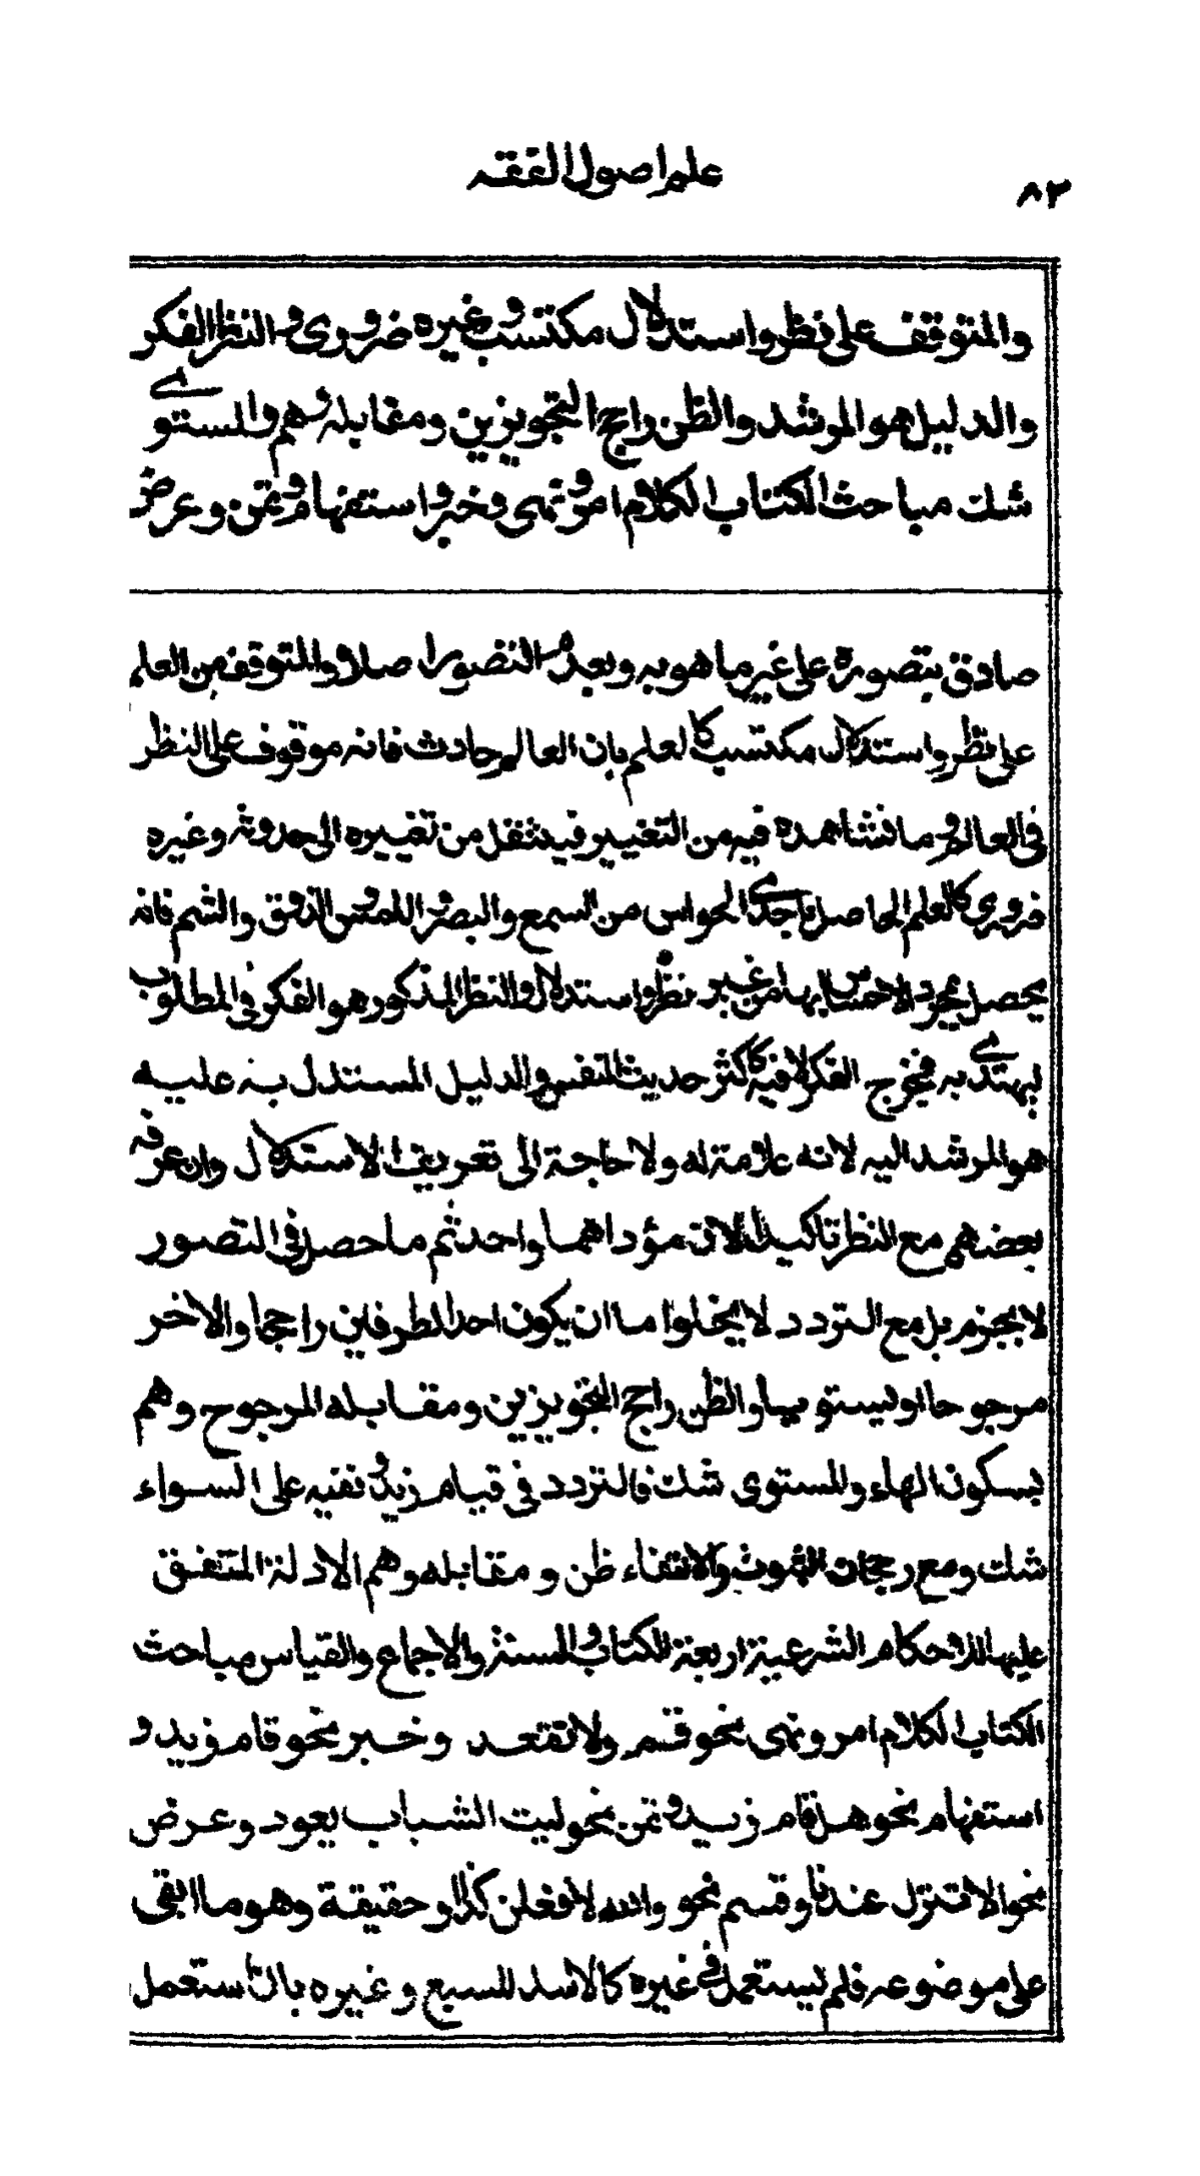 ٨٢
علم اصول الفقه
والمتوقف على نظر واستدلال مكتسب وغيره ضروري والنظر الفكر
والدليل هو المرشد والظن راجح التجويزين ومقابله وهم والمستوي
شك مباحث الكتاب الكلام امر ونهى وخبر واستفهام وتمن وعرض
صادق بتصوره على غير ما هو به وبعدم التصور اصلا والمتوقف من العلم
على نظر واستدلال مكتسب كالعلم بان العالم حادث فانه موقوف على النظر
فى العالم وما نشاهده فيه من التغيير فينتقل من تغييره الى حدوثه وغيره
ضروري كالعلم الحاصل باحدي الحواس من السمع والبصر واللمس والذوق والشم فانه
يحصل بمجرد الاحساس بها من غير نظر واستدلال والنظر المذكور هو الفكر فى المطلوب
ليهتدي به فيخرج الفكر لا فيه كاكثر حديث النفس والدليل المستدل به عليه
هو المرشد اليه لانه علامة له ولا حاجة الى تعريف الاستدلال وان عرفه
بعضهم مع النظر تاكيدا لان مؤداهما واحد ثم ما حصل فى التصور
لا بجزم بل مع التردد لا يخلو اما ان يكون احد الطرفين راجحا والاخر
مرجوحا او ليستويا والظن راجح التجويزين ومقابله المرجوح وهم
بسكون الهاء والمستوى شك فالتردد فى قيام زيد ونفيه على السواء
شك ومع رجحان الثبوت والانتفاء ظن و مقابله وهم الادلة المتفق
عليها للاحكام الشرعية اربعة الكتاب والسنة والاجماع والقياس مباحث
الكتاب الكلام امر ونهى نحو قم ولا تقعد وخبر نحو قام زيد و
استفهام نحو هل قام زيد وتمن نحو ليت الشباب يعود وعرض
نحو الا تنزل عندنا وقسم نحو والله لافعلن كذا وحقيقة وهو ما ابقى
على موضوعه فلم يستعمل فى غيره كالاسد للسبع وغيره بان استعمل